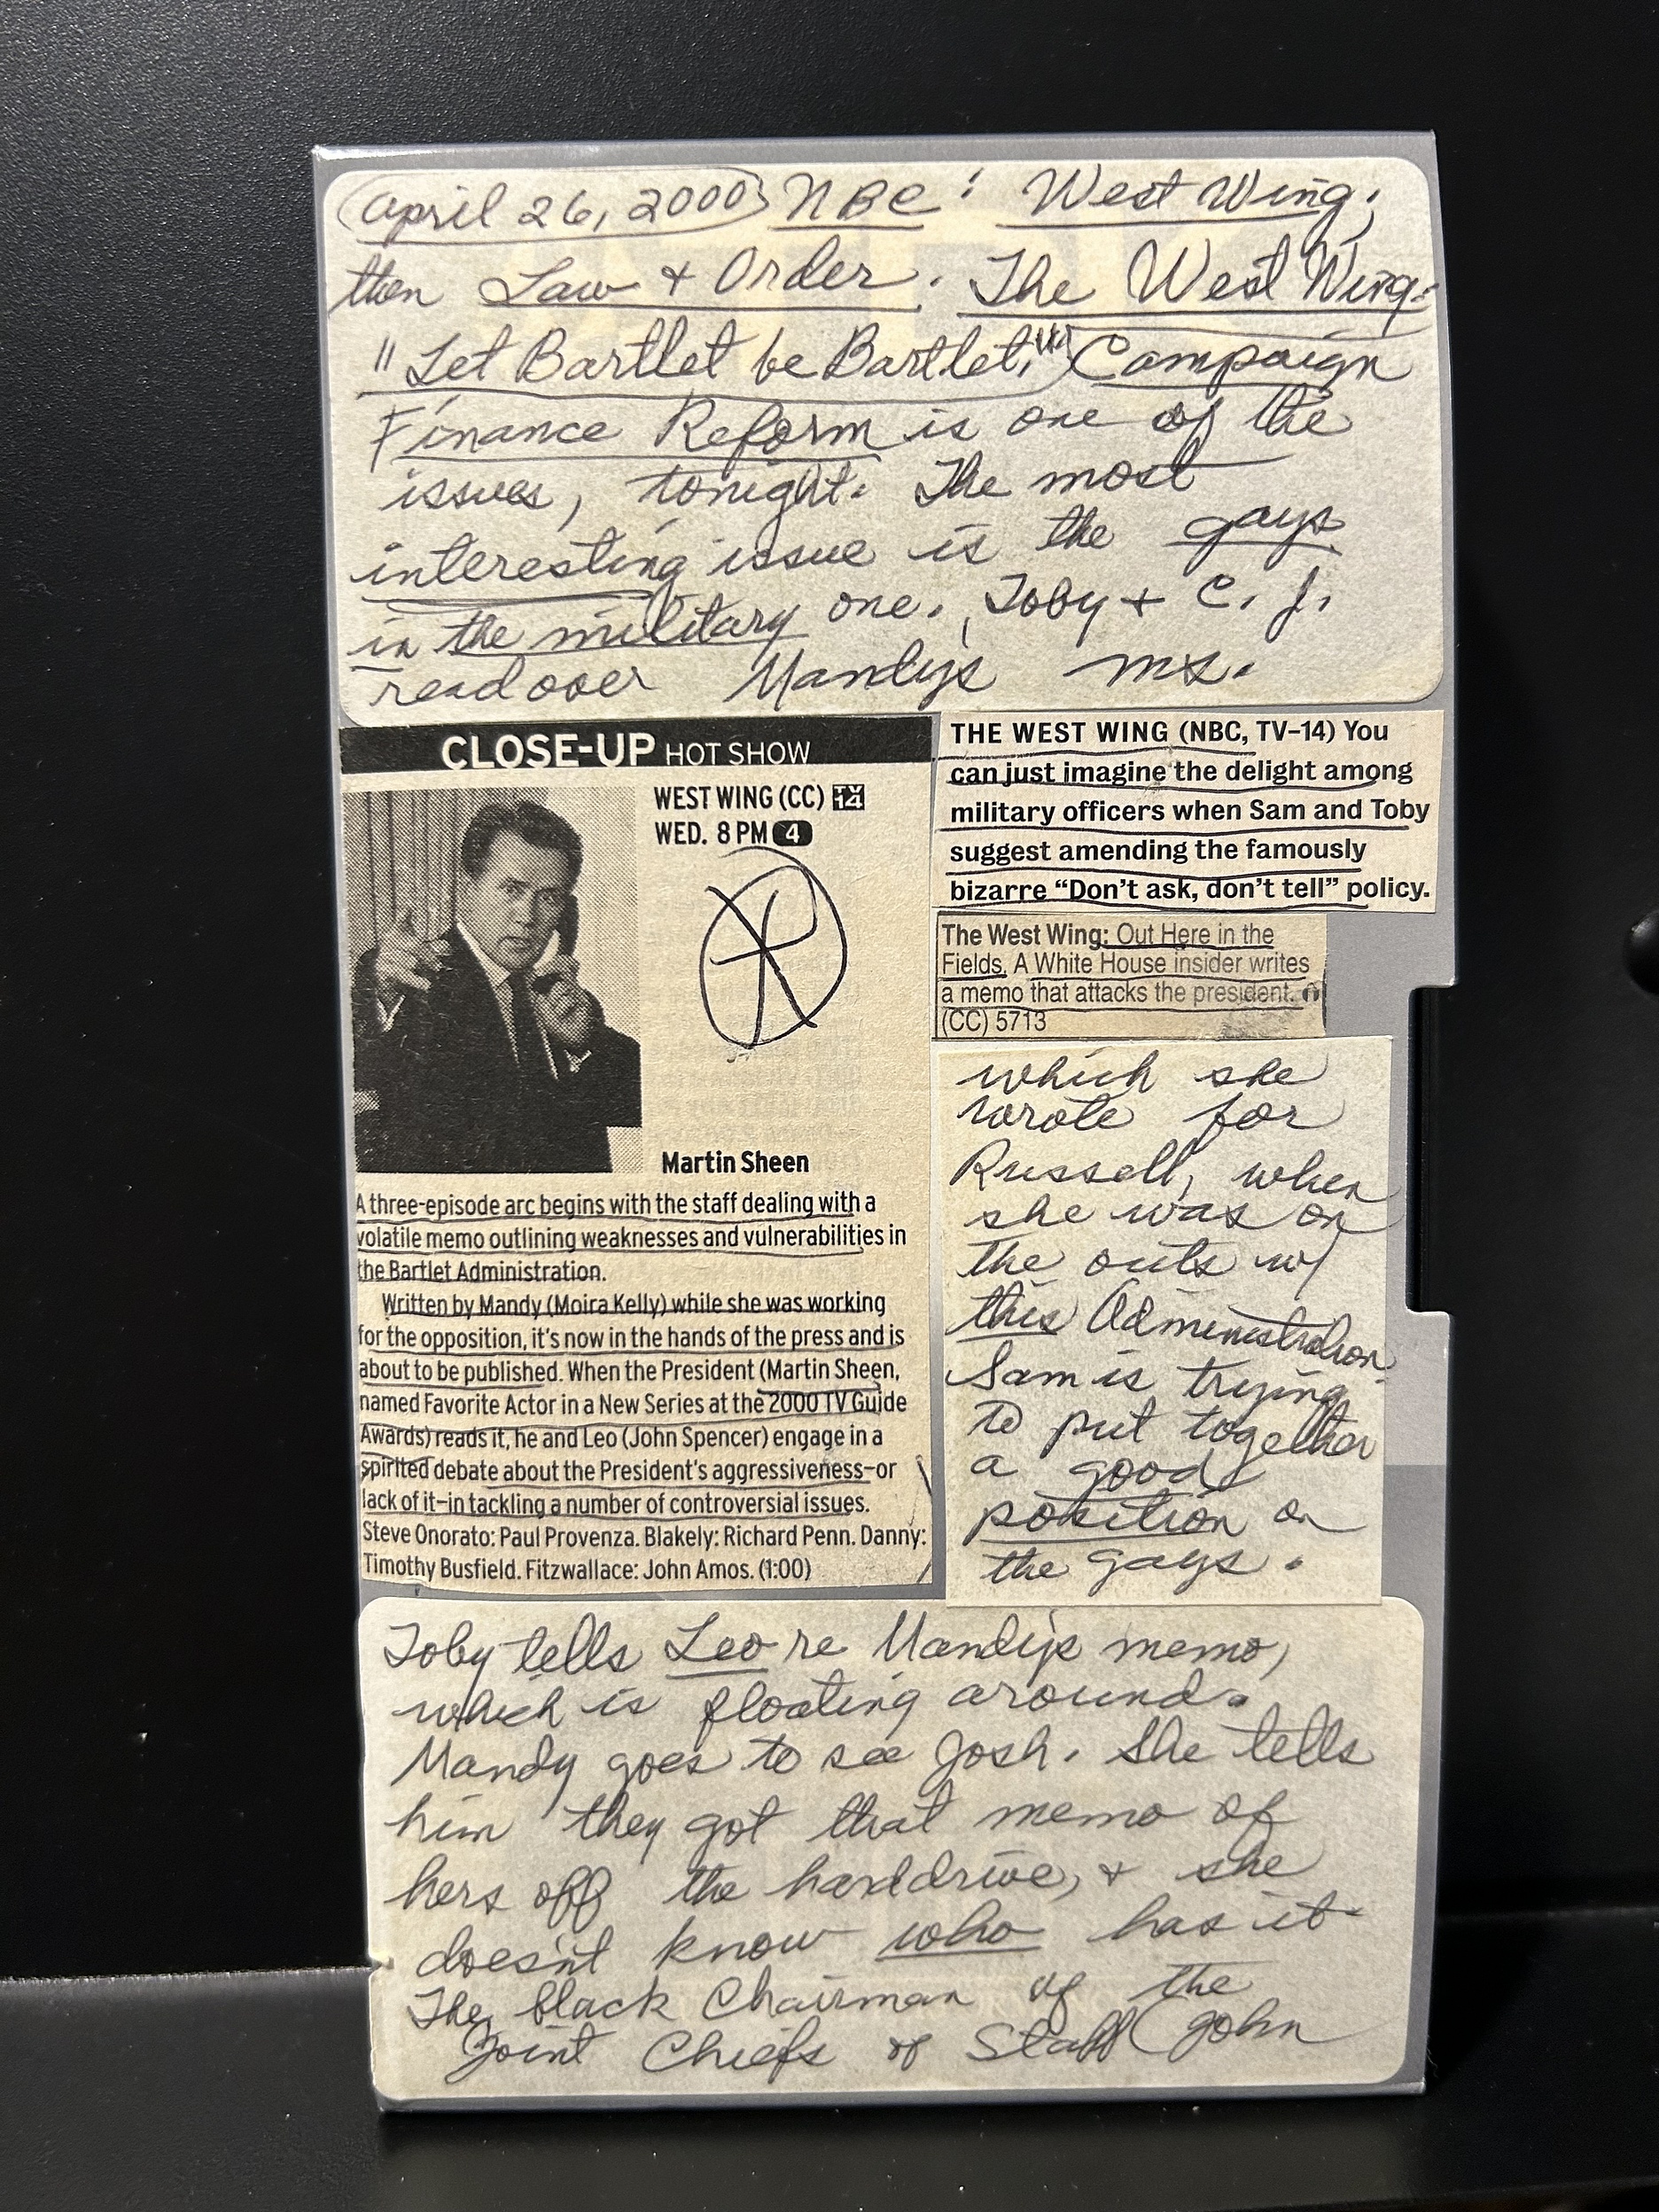 April 26, 2000 NBC: West Wing;
then Law + Order. The West Wing:
"Let Bartlet be Bartlet." Campaign
Finance Reform is one of the
issues, tonight. The most
interesting issue is the gays
in the military one. Toby + C. J.
read over Mandy's ms.
CLOSE-UP HOT SHOW
WEST WING (CC) TV 14
WED. 8 PM 4
Martin Sheen
A three-episode arc begins with the staff dealing with a
volatile memo outlining weaknesses and vulnerabilities in
the Bartlet Administration.
Written by Mandy (Moira Kelly) while she was working
for the opposition, it's now in the hands of the press and is
about to be published. When the President (Martin Sheen,
named Favorite Actor in a New Series at the 2000 TV Guide
Awards) reads it, he and Leo (John Spencer) engage in a
spirited debate about the President's aggressiveness—or
lack of it—in tackling a number of controversial issues.
Steve Onorato: Paul Provenza. Blakely: Richard Penn. Danny:
Timothy Busfield. Fitzwallace: John Amos. (1:00)
THE WEST WING (NBC, TV-14) You
can just imagine the delight among
military officers when Sam and Toby
suggest amending the famously
bizarre "Don't ask, don't tell" policy.
The West Wing: Out Here in the
Fields. A White House insider writes
a memo that attacks the president.
(CC) 5713
which she
wrote for
Russell, when
she was on
the outs w/
this Administration.
Sam is trying
to put together
a good
position on
the gays.
Toby tells Leo re Mandy's memo,
which is floating around.
Mandy goes to see Josh. She tells
him they got that memo of
hers off the harddrive, + she
doesn't know who has it.
The black Chairman of the
Joint Chiefs of Staff (John